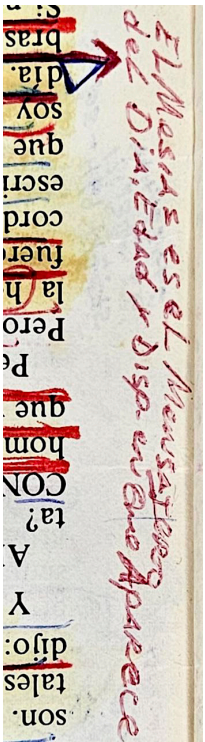 El Mesias es el Mensajero
del Dia, Edad y Disp. en Que Aparece
son.
tales
dijo:
Y
ta?
CON
hom
que
Pe
Pero
la h
fuero
cord
escri
que
soy
día.
bras
Si n